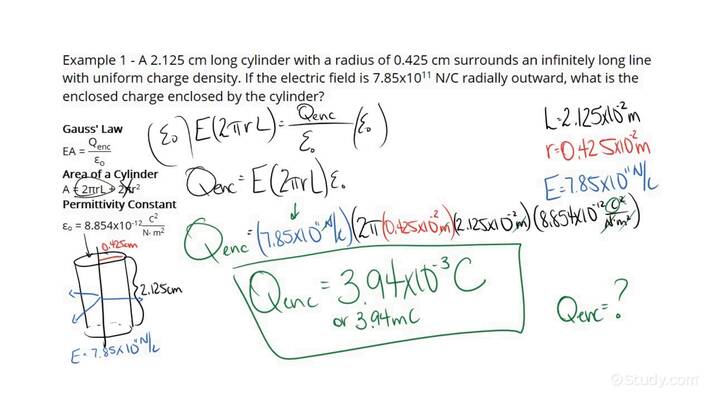 Example 1 - A 2.125 cm long cylinder with a radius of 0.425 cm surrounds an infinitely long line
with uniform charge density. If the electric field is 7.85x10¹¹ N/C radially outward, what is the
enclosed charge enclosed by the cylinder?
Gauss' Law
EA = Qenc/ε₀
Area of a Cylinder
A = 2πrL + 2πr²
Permittivity Constant
ε₀ = 8.854x10⁻¹² C²/N·m²
0.425cm
2.125cm
E=7.85x10¹¹ N/C
(ε₀) E(2πrL) = Qenc/ε₀ (ε₀)
Qenc = E(2πrL)ε₀
Qenc = (7.85x10¹¹ N/C)(2π(0.425x10⁻²m)(2.125x10⁻²m)(8.854x10⁻¹² C²/N·m²)
Qenc = 3.94x10⁻³ C
or 3.94mC
L=2.125x10⁻²m
r=0.425x10⁻²m
E=7.85x10¹¹ N/C
Qenc=?
©Study.com